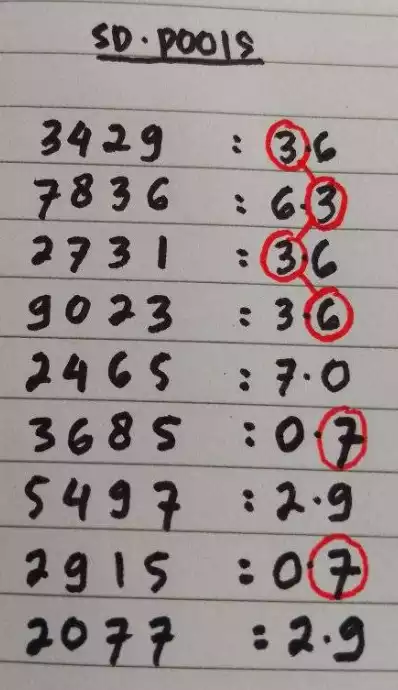 SD. POOLS
3429 : 3.6
7836 : 6.3
2731 : 3.6
9023 : 3.6
2465 : 7.0
3685 : 0.7
5497 : 2.9
2915 : 0.7
2077 : 2.9